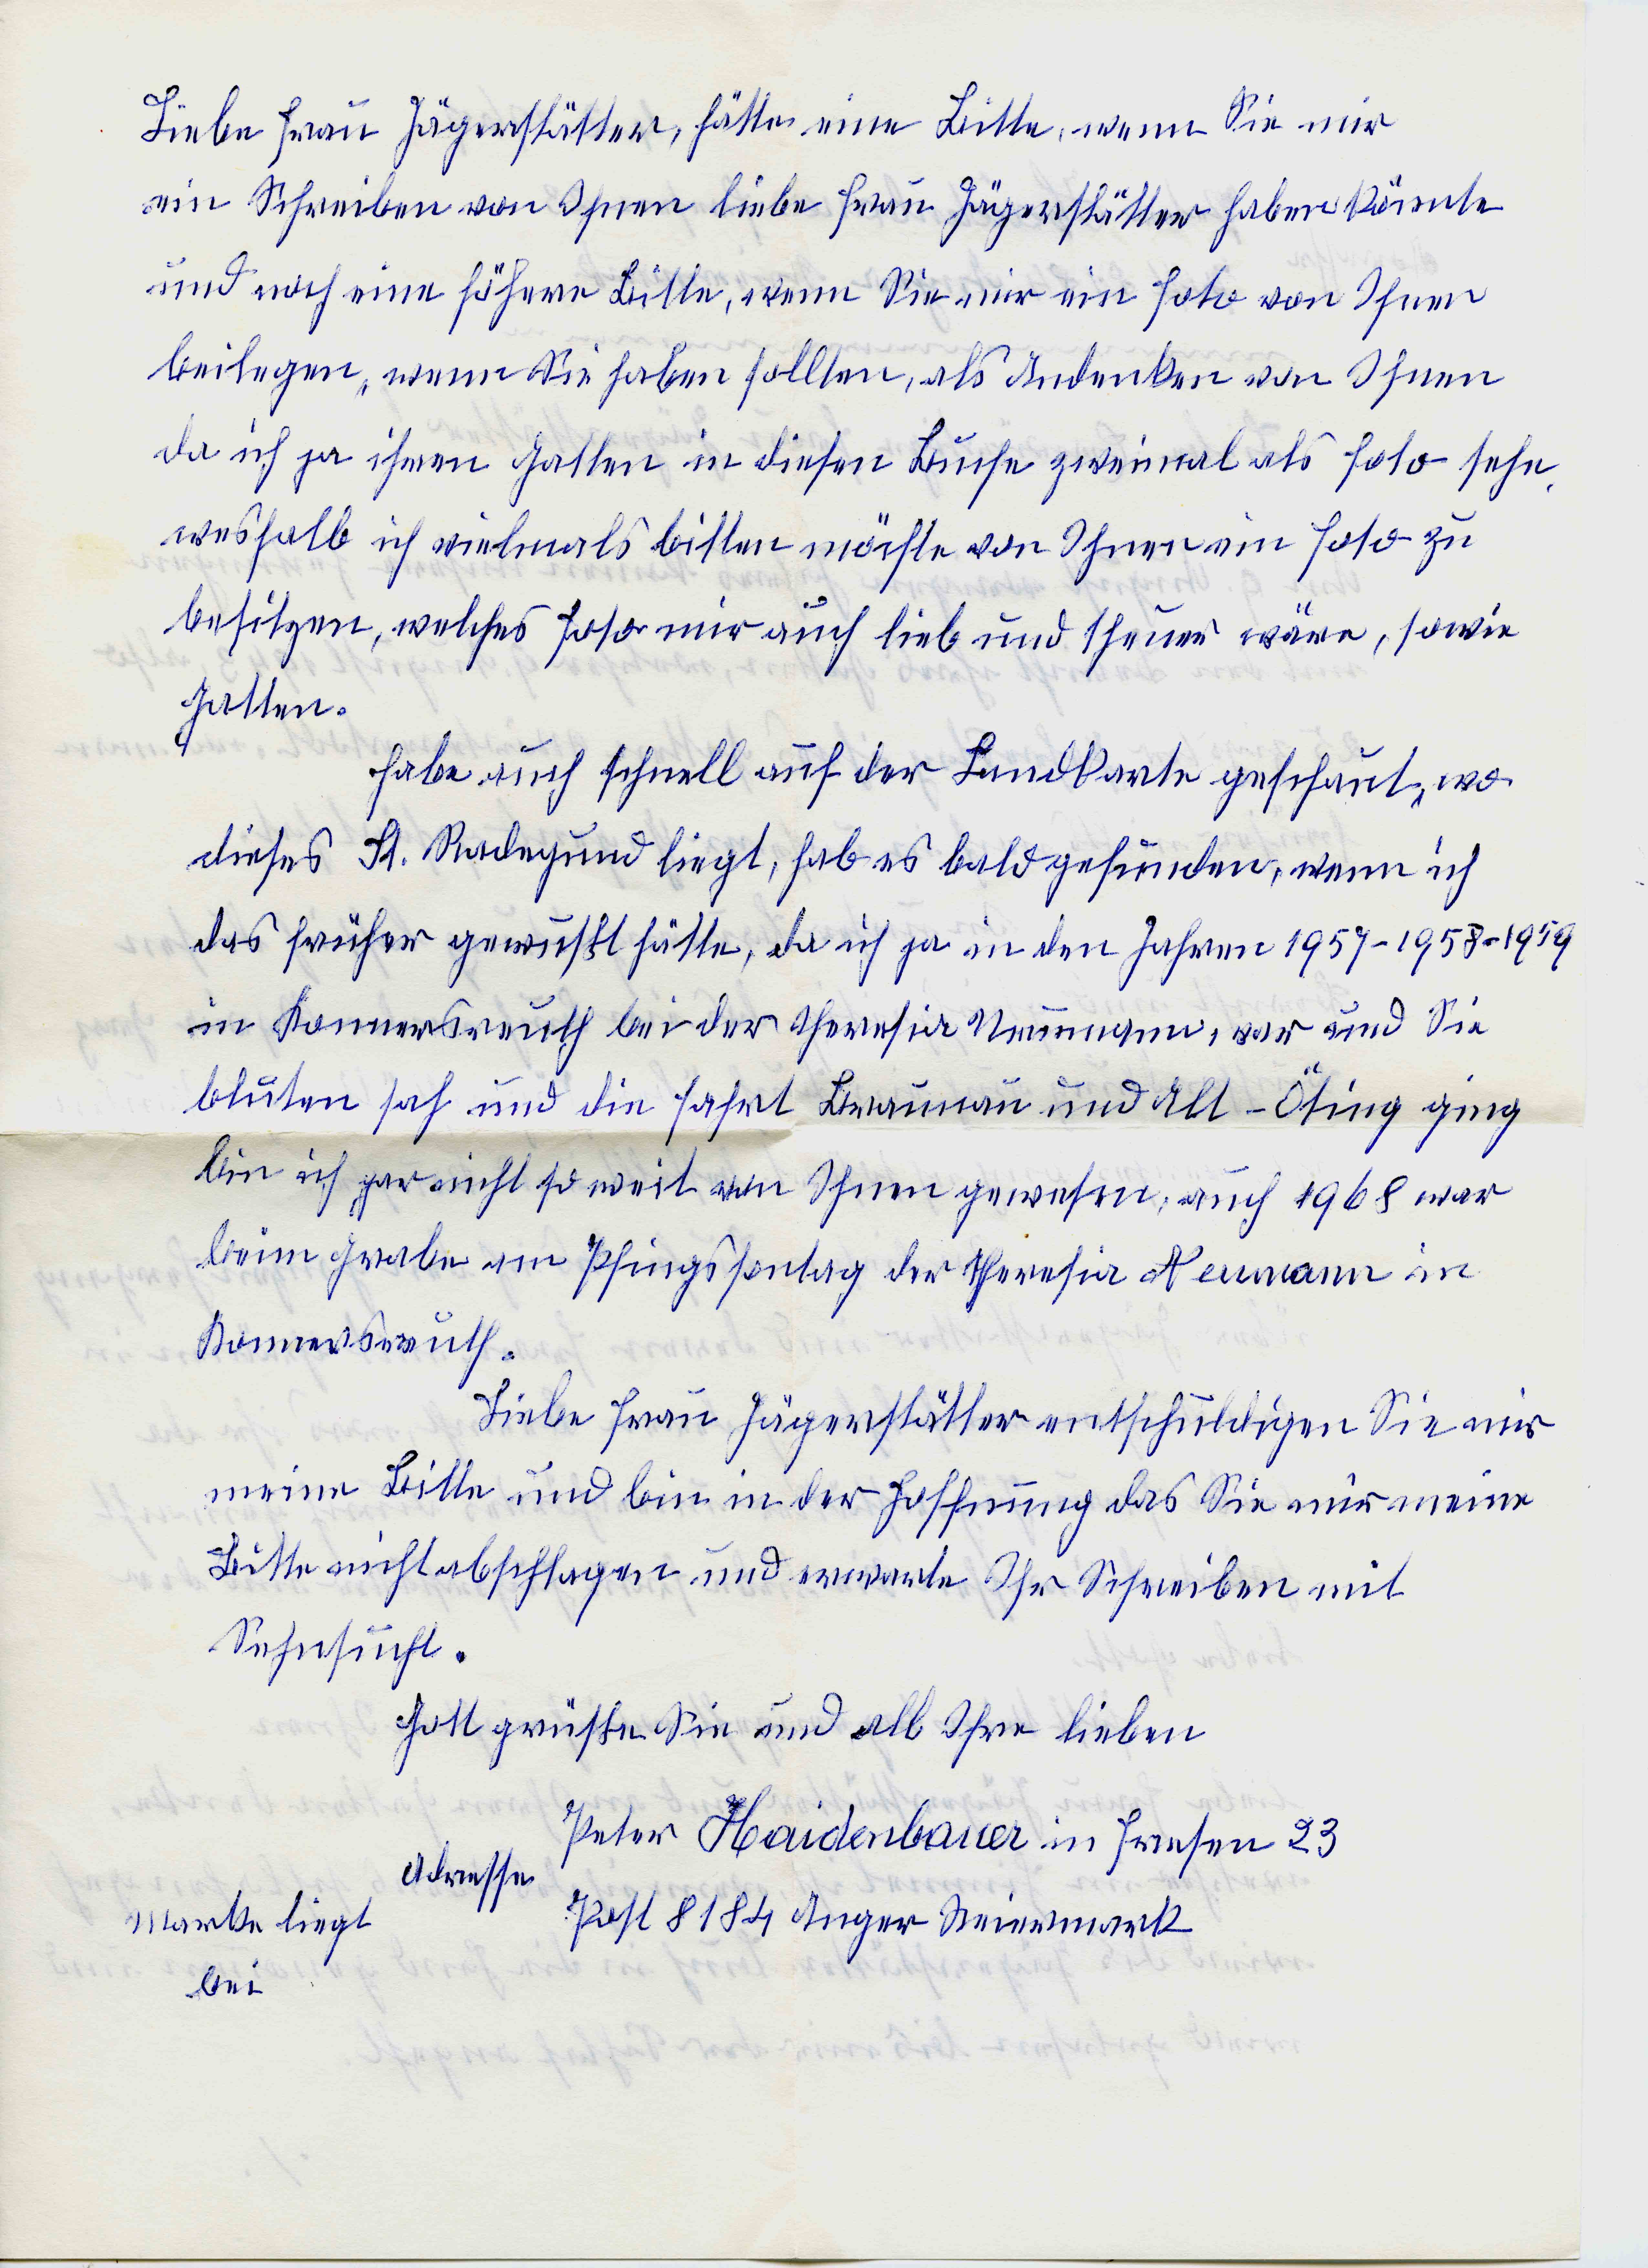 Liebe Frau Jägerstätter, hätte eine Bitte, wenn Sie mir
ein Schreiben von Ihnen liebe Frau Jägerstätter haben könnte
und noch eine höhere Bitte, wenn Sie mir ein Foto von Ihnen
beilegen, wenn Sie haben sollten, als Andenken von Ihnen
da ich ja ihren Gatten in diesen Buche zweimal als Foto sehe,
weshalb ich vielmals bitten möchte von Ihnen ein Foto zu
besitzen, welches Foto mir auch lieb und theuer wäre, sowie
Gatten.
Habe auch schnell auf der Landkarte geschaut, wo
dieses St. Radegund liegt, hab es bald gefunden, wenn ich
das früher gewußt hätte, da ich ja in den Jahren 1957-1958-1959
in Konnersreuth bei der Theresia Neumann, war und Sie
bluten sah und die Fahrt Braunau und Alt-Öting ging
bin ich gar nicht so weit von Ihnen gewesen, auch 1968 war
beim Grabe am Pfingssontag der Theresia Neumann in
Konnersreuth.
Liebe Frau Jägerstätter entschuldigen Sie mir
meine Bitte und bin in der Hoffnung das Sie mir meine
Bitte nicht abschlagen und erwarte Ihr Schreiben mit
Sehnsucht.
Gott grüße Sie und all Ihre lieben
Peter Haidenbauer in Fresen 23
Adresse
Post 8184 Anger Steiermark
Marke liegt
bei